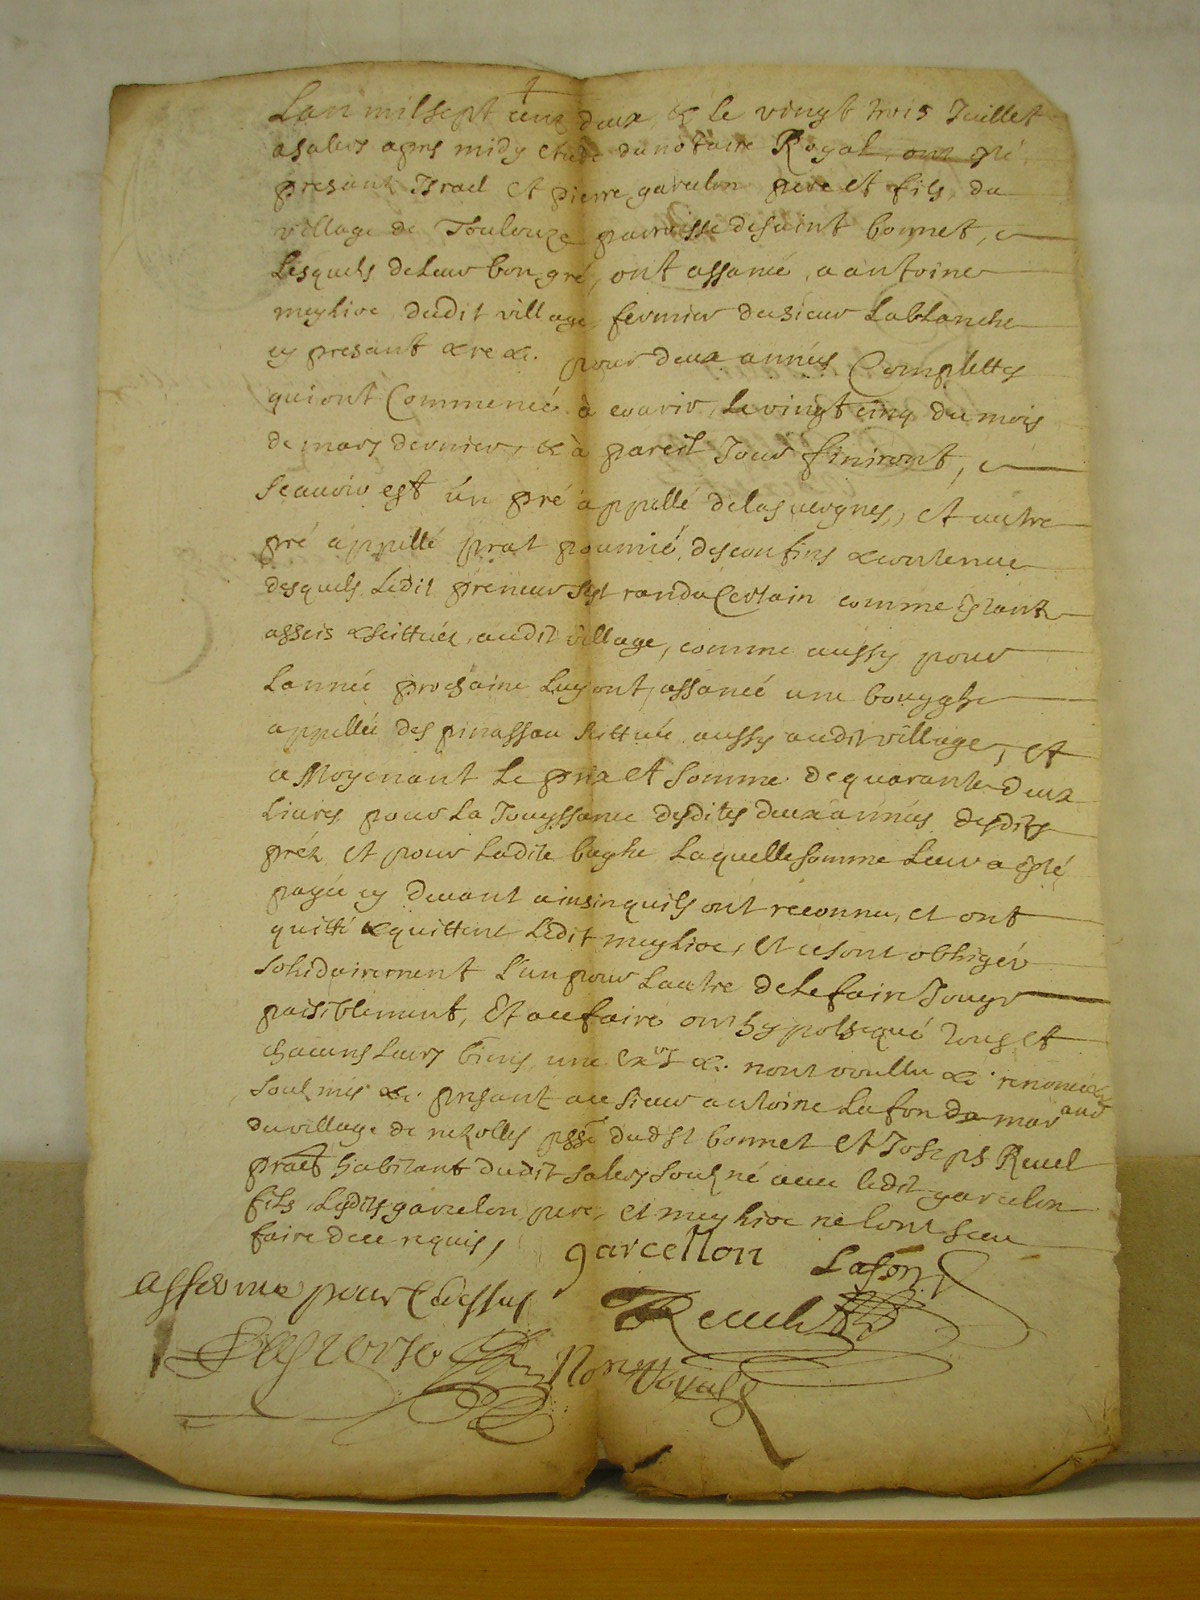 Lan mil sept cens deux & le vingt trois Juillet
a salers apres midy etude du notaire Royal, ont esté
presant Israel et pierre garcelon pere et fils du
village de Toulouze parroisse de saint bonnet,
Lesquels de leur bon gré, ont assancé, a antoine
meylioc dudit village, fermier du sieur Lablanche
cy presant &re &c. pour deux années Complettes
qui ont Commencé à courir, le vingt cinq du mois
de mars dernier, & à pareil Jour finiront,
scauoir est ún pré appellé de las vergnes, et autre
pré appellé prat poumié, des confins & contenue
desquels Ledit preneur sest randu Certain comme Estant
assis & scittuéz, audit village, comme aussy pour
Lannée prochaine Luy ont, assancé une bougghe
appellée des pinassau scittuée aussy audit village, et
a Moyenant Le prix et somme de quarante deux
Liures pour La Jouyssance desdites deux années desdits
préz et pour Ladite bughe Laquelle somme Leur a esté
payée cy deuant ainsin quils ont réconnu, et ont
quitté & quittent Ledit meylioc, et ce sont obligés
solidairement L'un pour Lautre de Le faire Jouyr
paisiblement, Et a ce faire ont hypothequé tous et
chacuns leurs biens, une &c. nont voullu &c. renoncé &c
soubmis &c. presant a ce sieur antoine Lafon
du village de nezolles psse dud St bonnet et Joseph Reuel
prat habitant dudit salers soubz né auec ledit garcelon
fils Lesdits garcelon pere, et meylioc ne lont sceu
faire de ce requis,
garcellon Lafon
assferme pour Cdessus
Reuel
Nore Royal